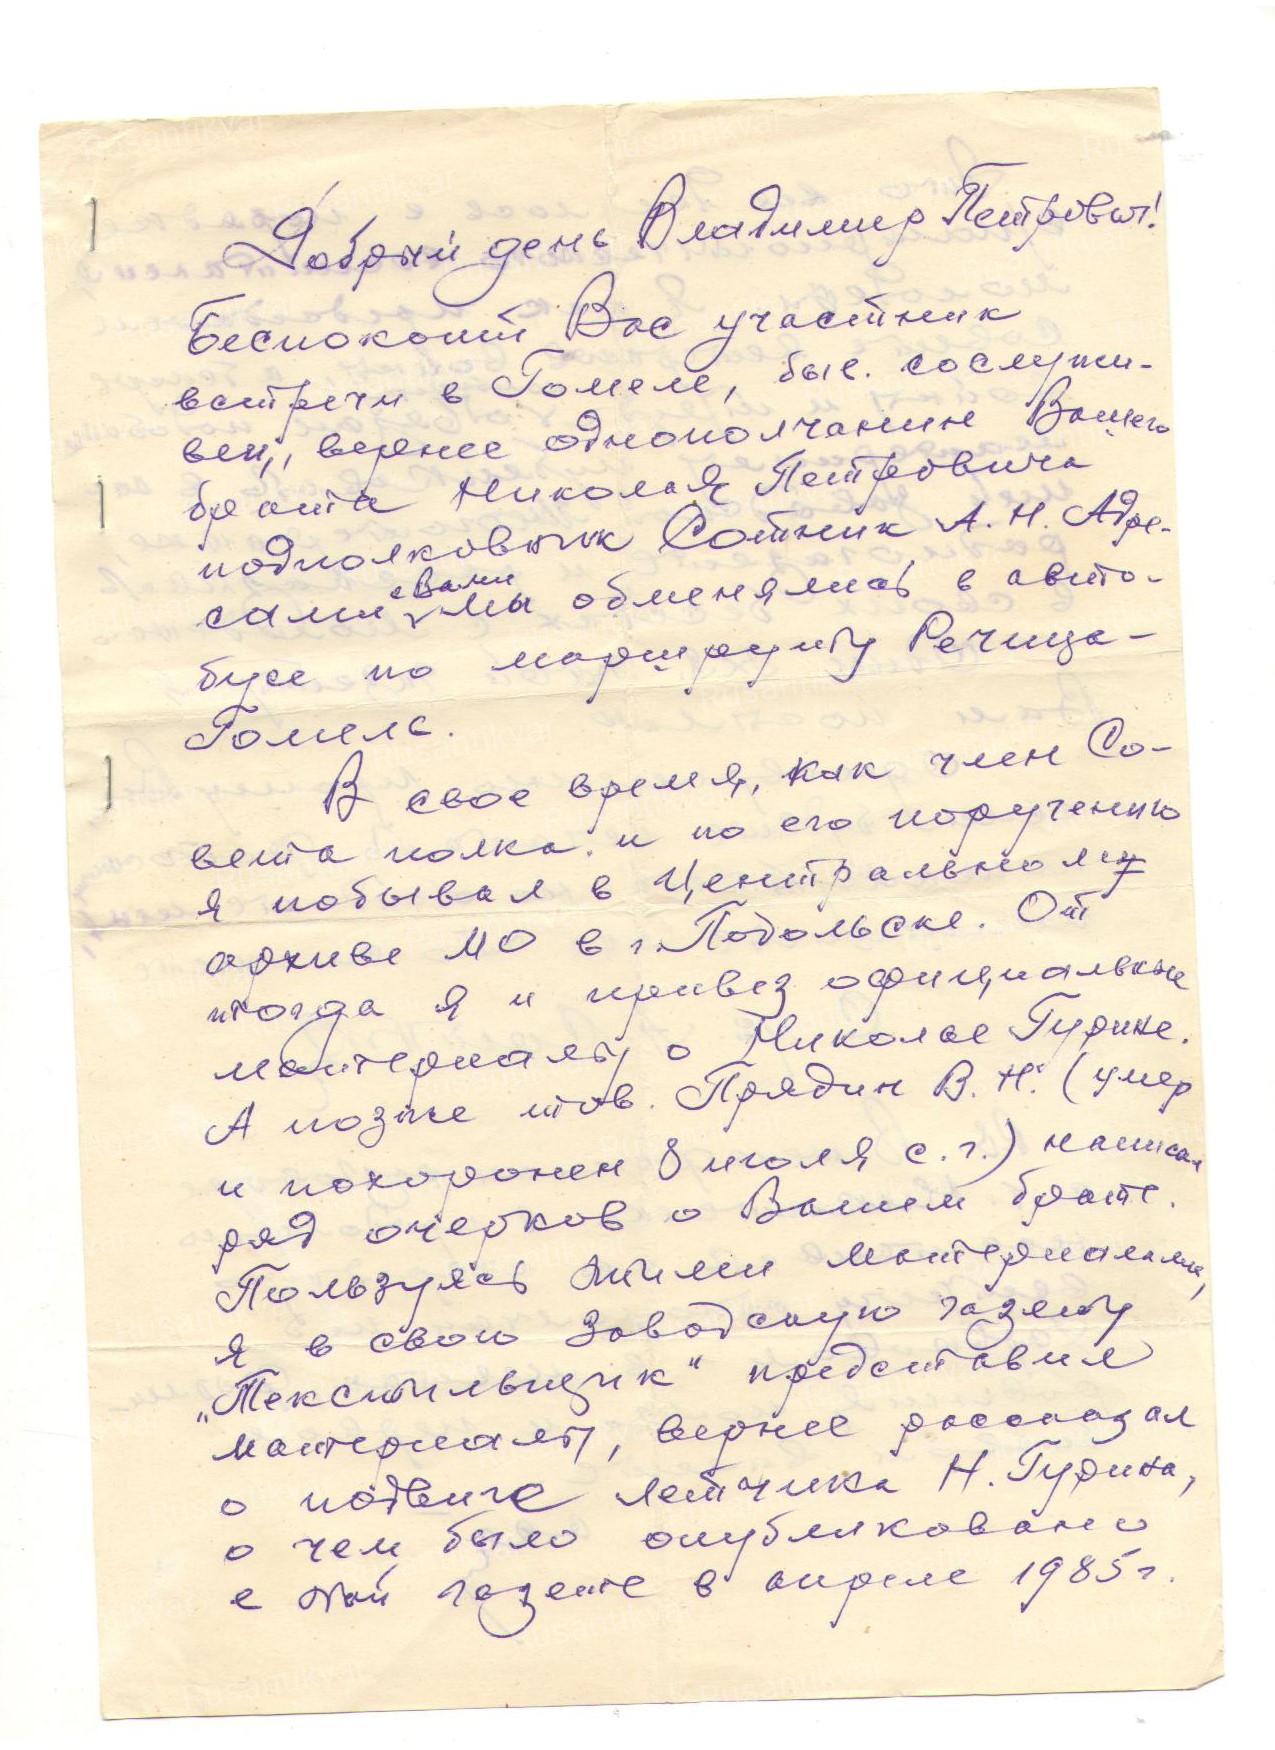 Добрый день Владимир Петрович!
Беспокоит Вас участник
встречи в Гомеле, быв. сослужи-
вец, вернее однополчанин Вашего
брата Николая Петровича
подполковник Сотник А. Н. Адре-
сами с Вами мы обменялись в авто-
бусе по маршруту Речица-
Гомель.
В свое время, как член Со-
вета полка и по его поручению
я побывал в Центральном
архиве МО в г. Подольске. От
тогда я и привез официальные
материалы о Николае Гурине.
А позже тов. Прядин В. Н. (умер
и похоронен 8 июля с. г.) написал
ряд очерков о Вашем брате.
Пользуясь этими материалами,
я в свою заводскую газету
„Текстильщик" представил
материалы, вернее рассказал
о подвиге летчика Н. Гурина,
о чем было опубликовано
в этой газете в апреле 1985 г.